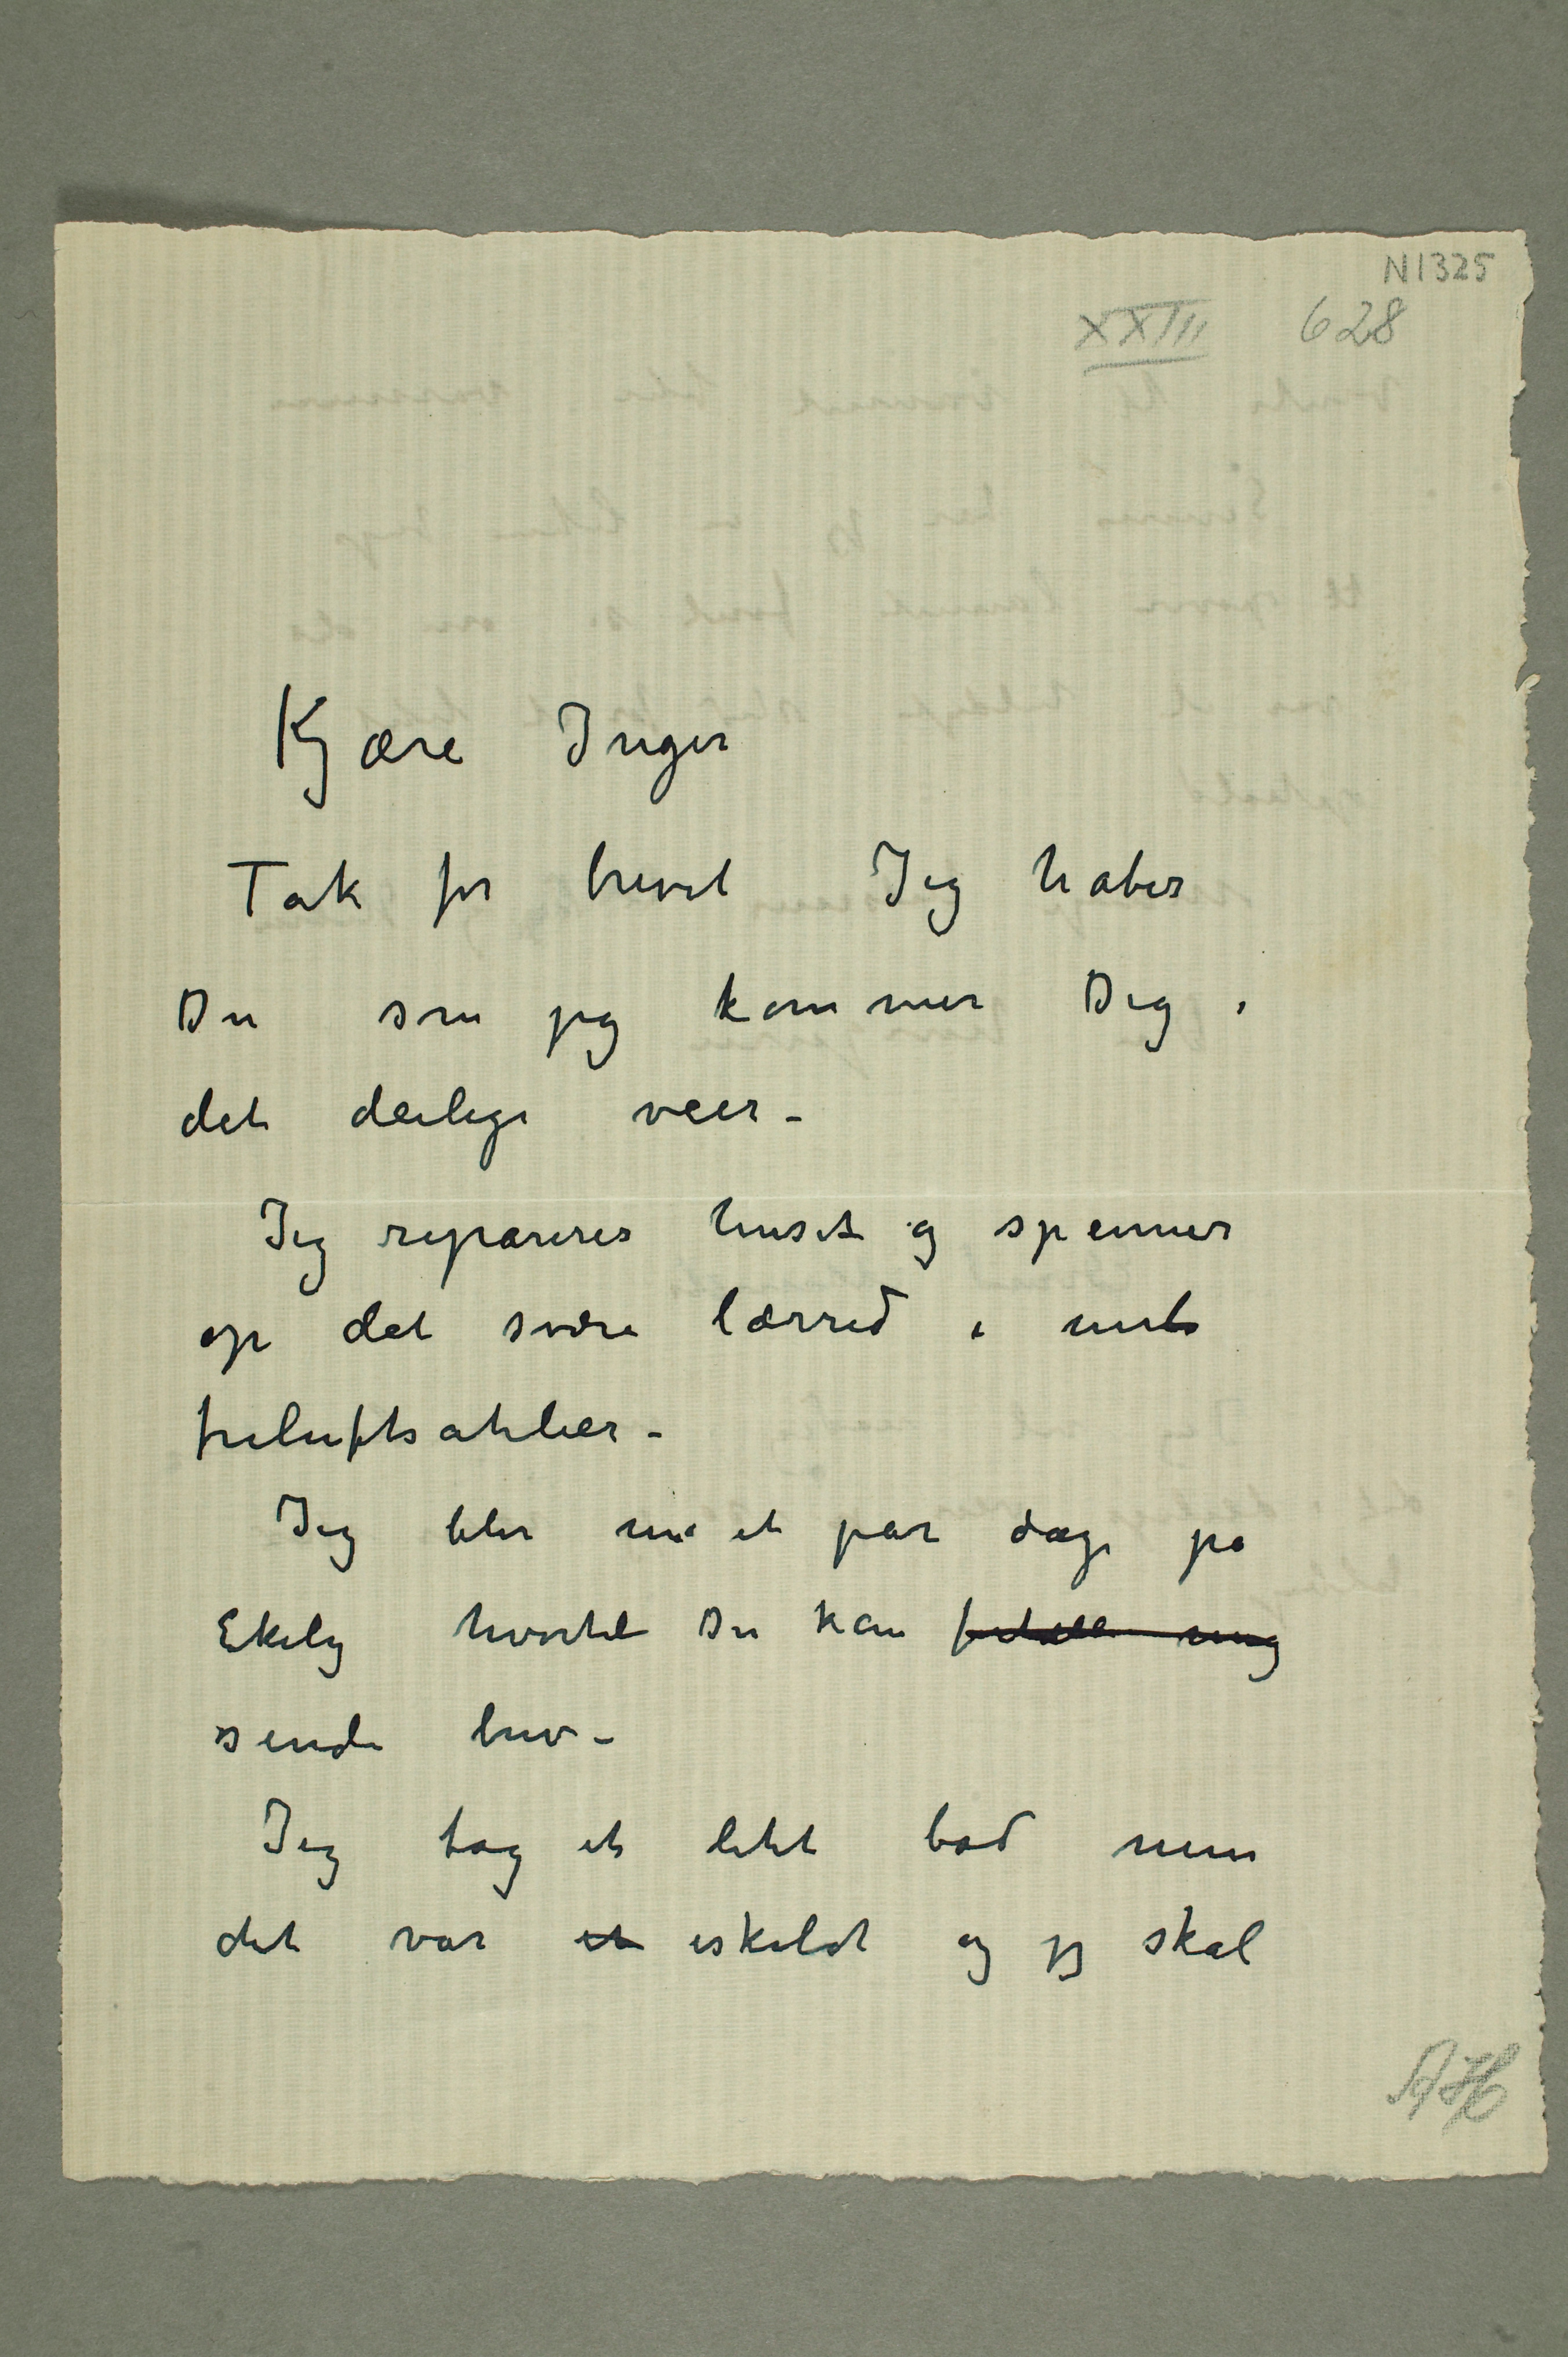 N1325
XXIII 628
Kjære Inger
Tak for brevet Jeg haber
Du som jeg kommer Dig i
det deilige veer –
Jeg reparerer huset og spenner
op det svære lærred i mit
friluftsatelier –
Jeg blir nu et par dage på
Ekely hvortil Du kan fortælle mig
sende brev –
Jeg tog et litet bad men
det var et iskaldt og jeg skal
AH